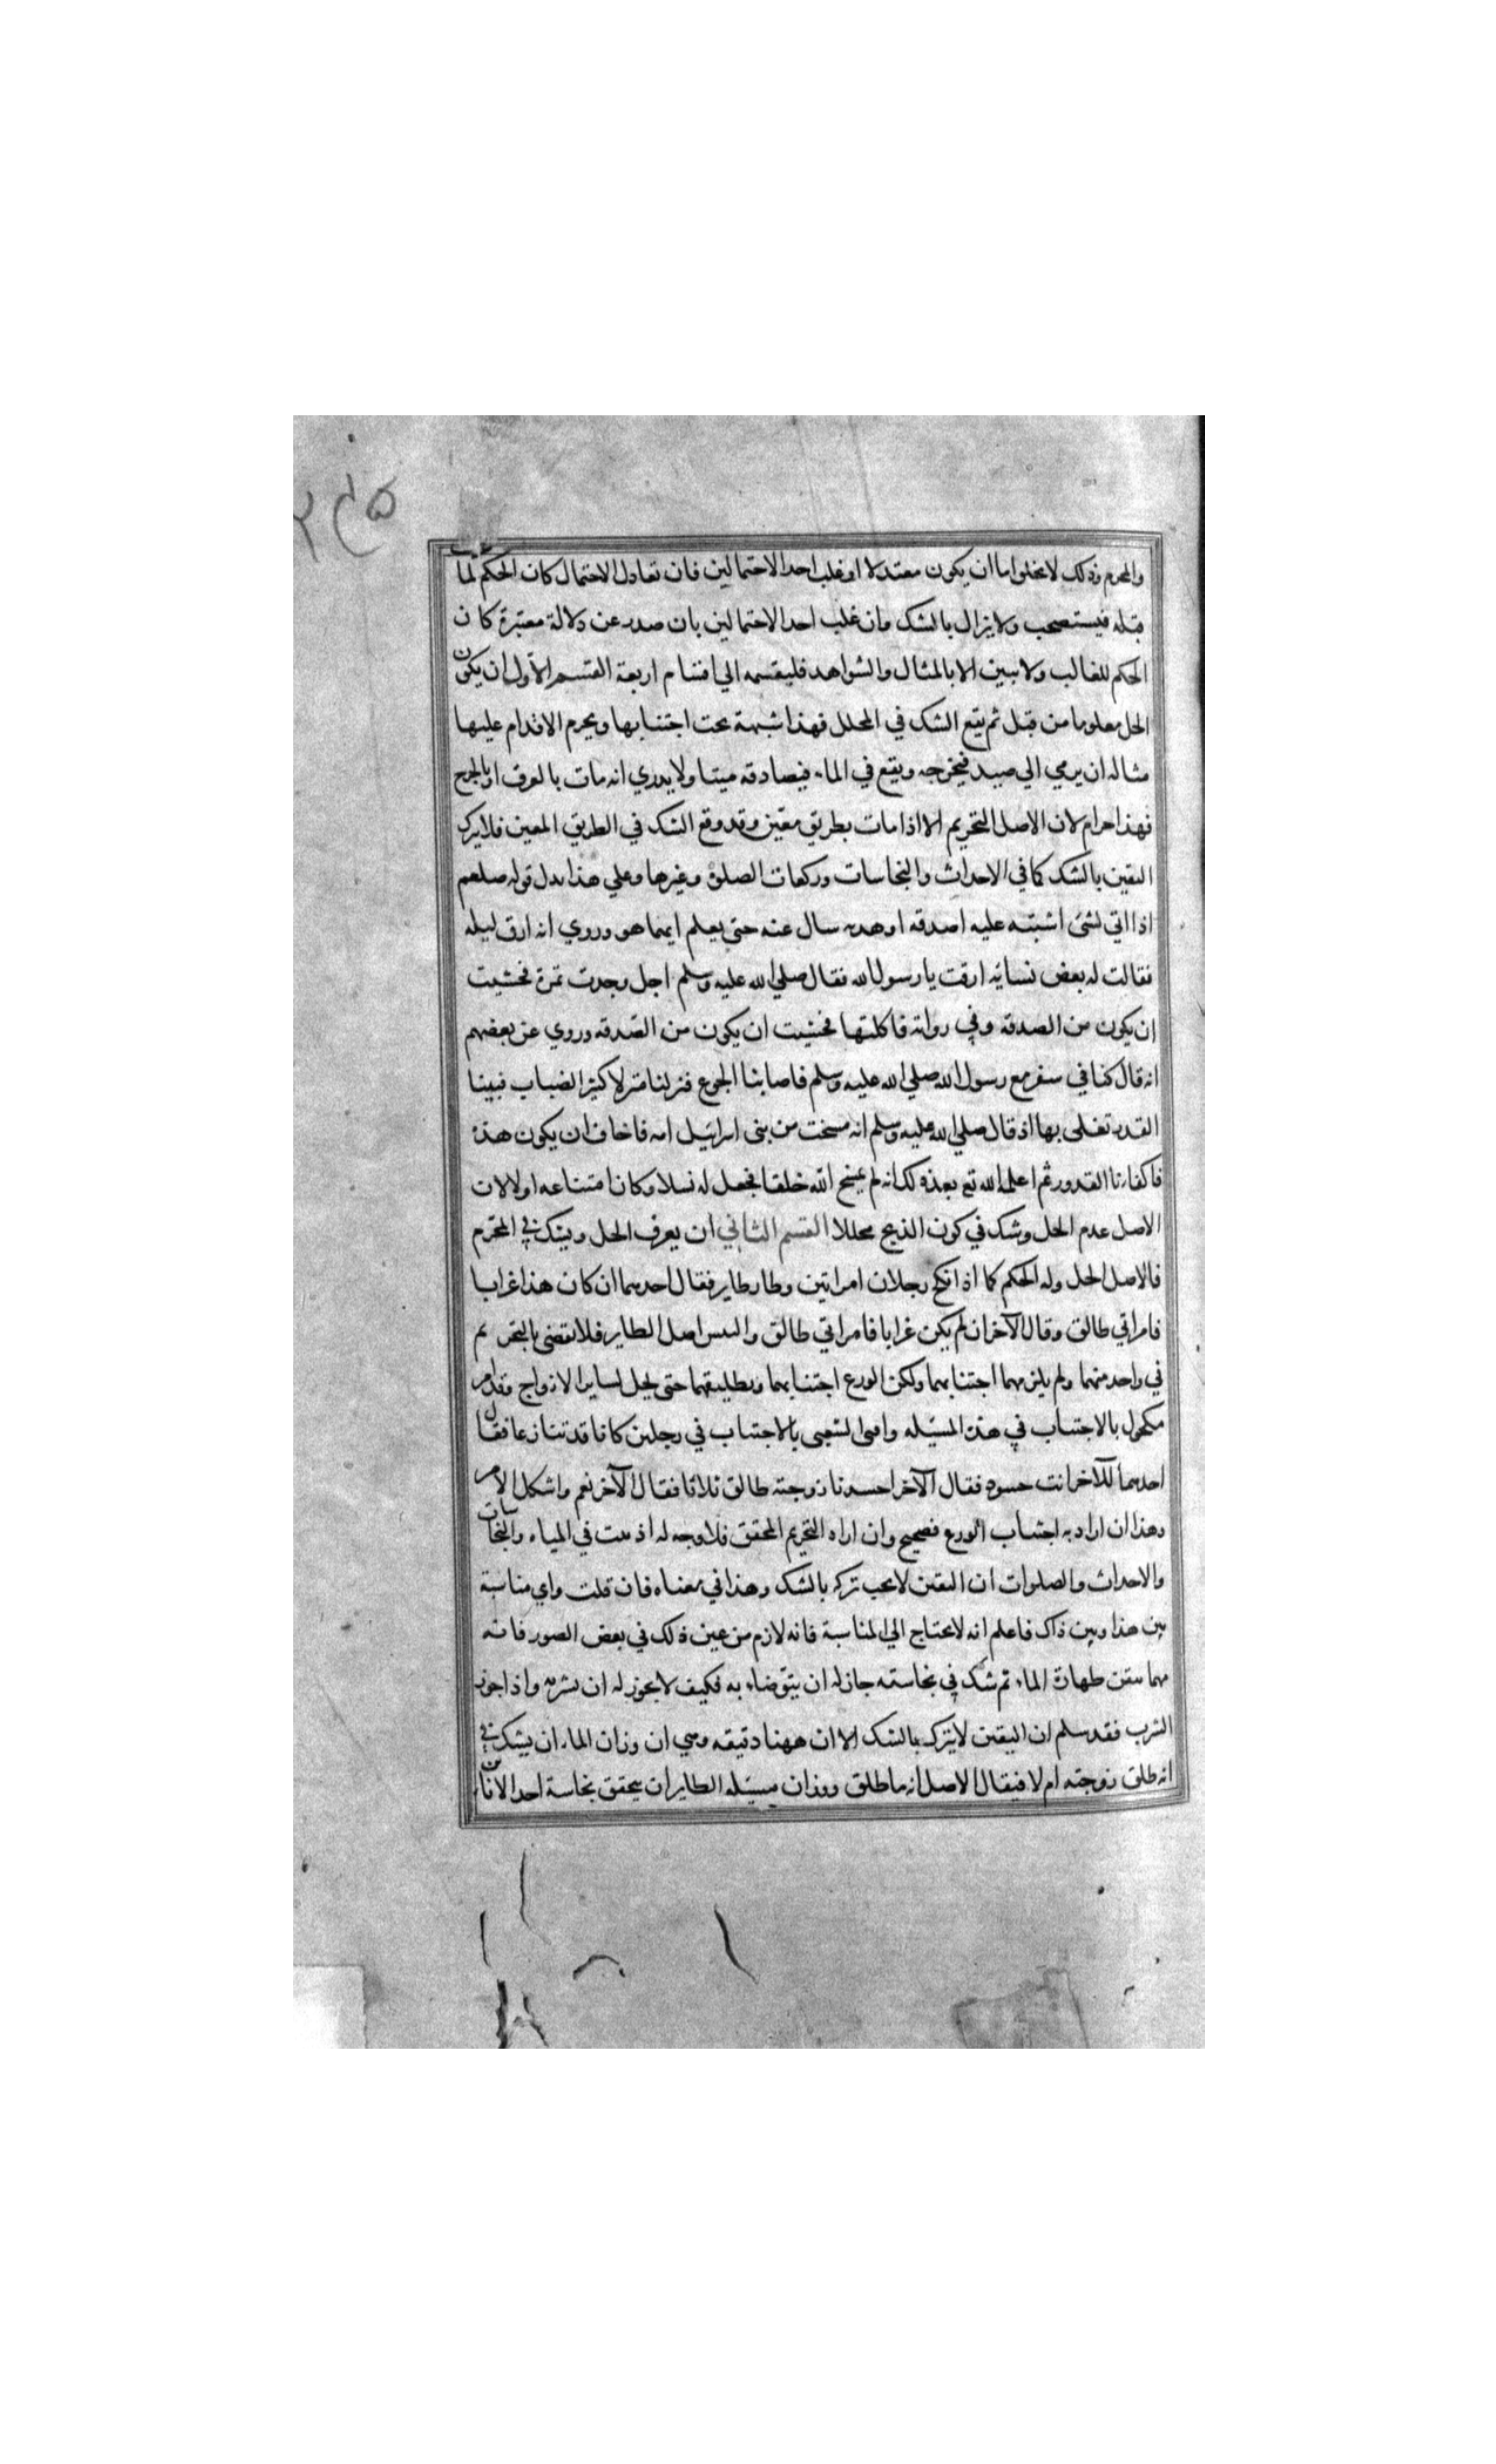 والمحرم وذلك لا يخلوا اما ان يكون معتدلا او غلب احد الاحتمالين فان تعادل الاحتمال كان الحكم لما
قبله فيستصحب ولا يزال بالشك وان غلب احد الاحتمالين بان صدر عن دلالة معتبرة كان
الحكم للغالب ولا يبين الا بالمثال والشواهد فليقسمه الي اقسام اربعة القسم الاول ان يكون
الحل معلوما من قبل ثم يقع الشك في المحلل فهذا شبهة يجب اجتنابها ويحرم الاقدام عليها
مثاله ان يرمي الي صيد فيخرجه ويقع في الماء فيصادقه ميتا ولا يدري انه مات بالغرق او بالجرح
فهذا حرام لان الاصل التحريم الا اذا مات بطريق معين وقد وقع الشك في الطريق المعين فلا يترك
اليقين بالشك كما في الاحداث والنجاسات وركعات الصلوة وغيرها وعلي هذا يدل قوله صلعم
اذا اتي بشئ اشبته عليه اصدقه او هديه سال عنه حتى يعلم ايهما هو وروي انه ارق ليله
فقالت له بعض نسائه ارقت يا رسول الله فقال صلي الله عليه وسلم اجل وجدت تمرة فخشيت
ان يكون من الصدقه وفي روايه فاكلتها فخشيت ان يكون من الصدقه وروي عن بعضهم
انه قال كنا في سفر مع رسول الله صلي الله عليه وسلم فاصابنا الجوع فنزلنا منزلا كثير الضباب فبينا
القدر تغلي بها اذ قال صلي الله عليه وسلم انه مسخت من بني اسرائيل امه فاخاف ان يكون هذه
فاكفانا القدور ثم اعلمه الله تع بعد ذلك انه لم يمسخ الله خلقا فجعل له نسلا وكان امتناعه اولا لان
الاصل عدم الحل وشك في كون الذبح محللا القسم الثاني ان يعرف الحل ويشك في المحرم
فالاصل الحل وله الحكم كما اذا نكح رجلان امراتين وطار طاير فقال احدهما ان كان هذا غرابا
فامراتي طالق وقال الآخر ان لم يكن غرابا فامراتي طالق والتبس اصل الطاير فلا يقضى بالتحريم
في واحد منهما ولم يلزمهما اجتنابهما ولكن الورع اجتنابهما وتطليقهما حتى يحل لساير الازواج وقد امر
مكحول بالاجتناب في هذه المسئله وافتى الشعبى بالاجتناب في رجلين كانا قد تنازعا فقال
احدهما للآخر انت حسود فقال الآخر احسدنا زوجته طالق ثلاثا فقال الآخر نعم واشكل الامر
وهذا ان اراد به اجتناب الورع فصحيح وان اراد التحريم المحقق فلا وجه له اذ ثبت في المياه والنجاسات
والاحداث والصلوات ان اليقين لا يجب تركه بالشك وهذا في معناه فان قلت واي مناسبة
بين هذا وبين ذاك فاعلم انه لا يحتاج الي المناسبة فانه لازم من غير ذلك في بعض الصور فانه
مهما تيقن طهارة الماء ثم شك في نجاسته جاز له ان يتوضاء به فكيف لا يجوز له ان يشربه واذا جوز
الشرب فقد سلم ان اليقين لا يترك بالشك الا ان ههنا دقيقه وهي ان وزان الماء ان يشك في
انه طلق زوجته ام لا فيقال الاصل انه ما طلق ووزان مسئله الطاير ان يتحقق نجاسة احد الانائين